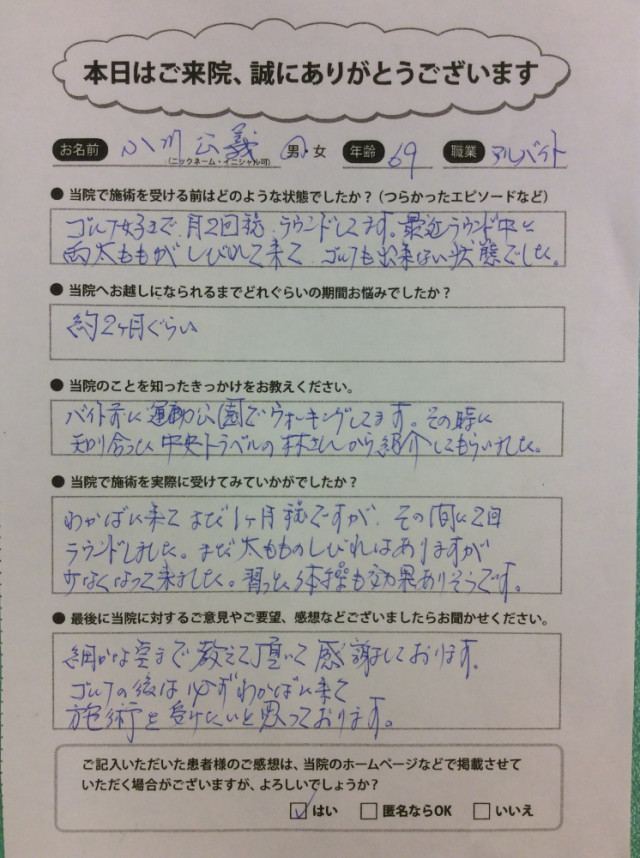 本日はご来院、誠にありがとうございます
お名前 小川公義 (ニックネーム・イニシャル可) 男・女 年齢 69 職業 アルバイト
● 当院で施術を受ける前はどのような状態でしたか？（つらかったエピソードなど）
ゴルフ好きで、月2回程、ラウンドしてます。最近ラウンド中に
両太ももがしびれて来て、ゴルフも出来ない状態でした。
● 当院へお越しになられるまでどれぐらいの期間お悩みでしたか？
約2ヶ月ぐらい
● 当院のことを知ったきっかけをお教えください。
バイト前に運動公園でウォーキングしてます。その時に
知り合った中央トラベルの林さんから紹介してもらいました。
● 当院で施術を実際に受けてみていかがでしたか？
わかばに来てまだ1ヶ月程ですが、その間に2回
ラウンドしました。まだ太もものしびれはありますが
少なくなって来ました。習った体操も効果ありそうです。
● 最後に当院に対するご意見やご要望、感想などございましたらお聞かせください。
細かな まで教えて頂いて感謝しております。
ゴルフの後は必ずわかばに来て
施術を受けたいと思っております。
ご記入いただいた患者様のご感想は、当院のホームページなどで掲載させて
いただく場合がございますが、よろしいでしょうか？
☑ はい □ 匿名ならOK □ いいえ